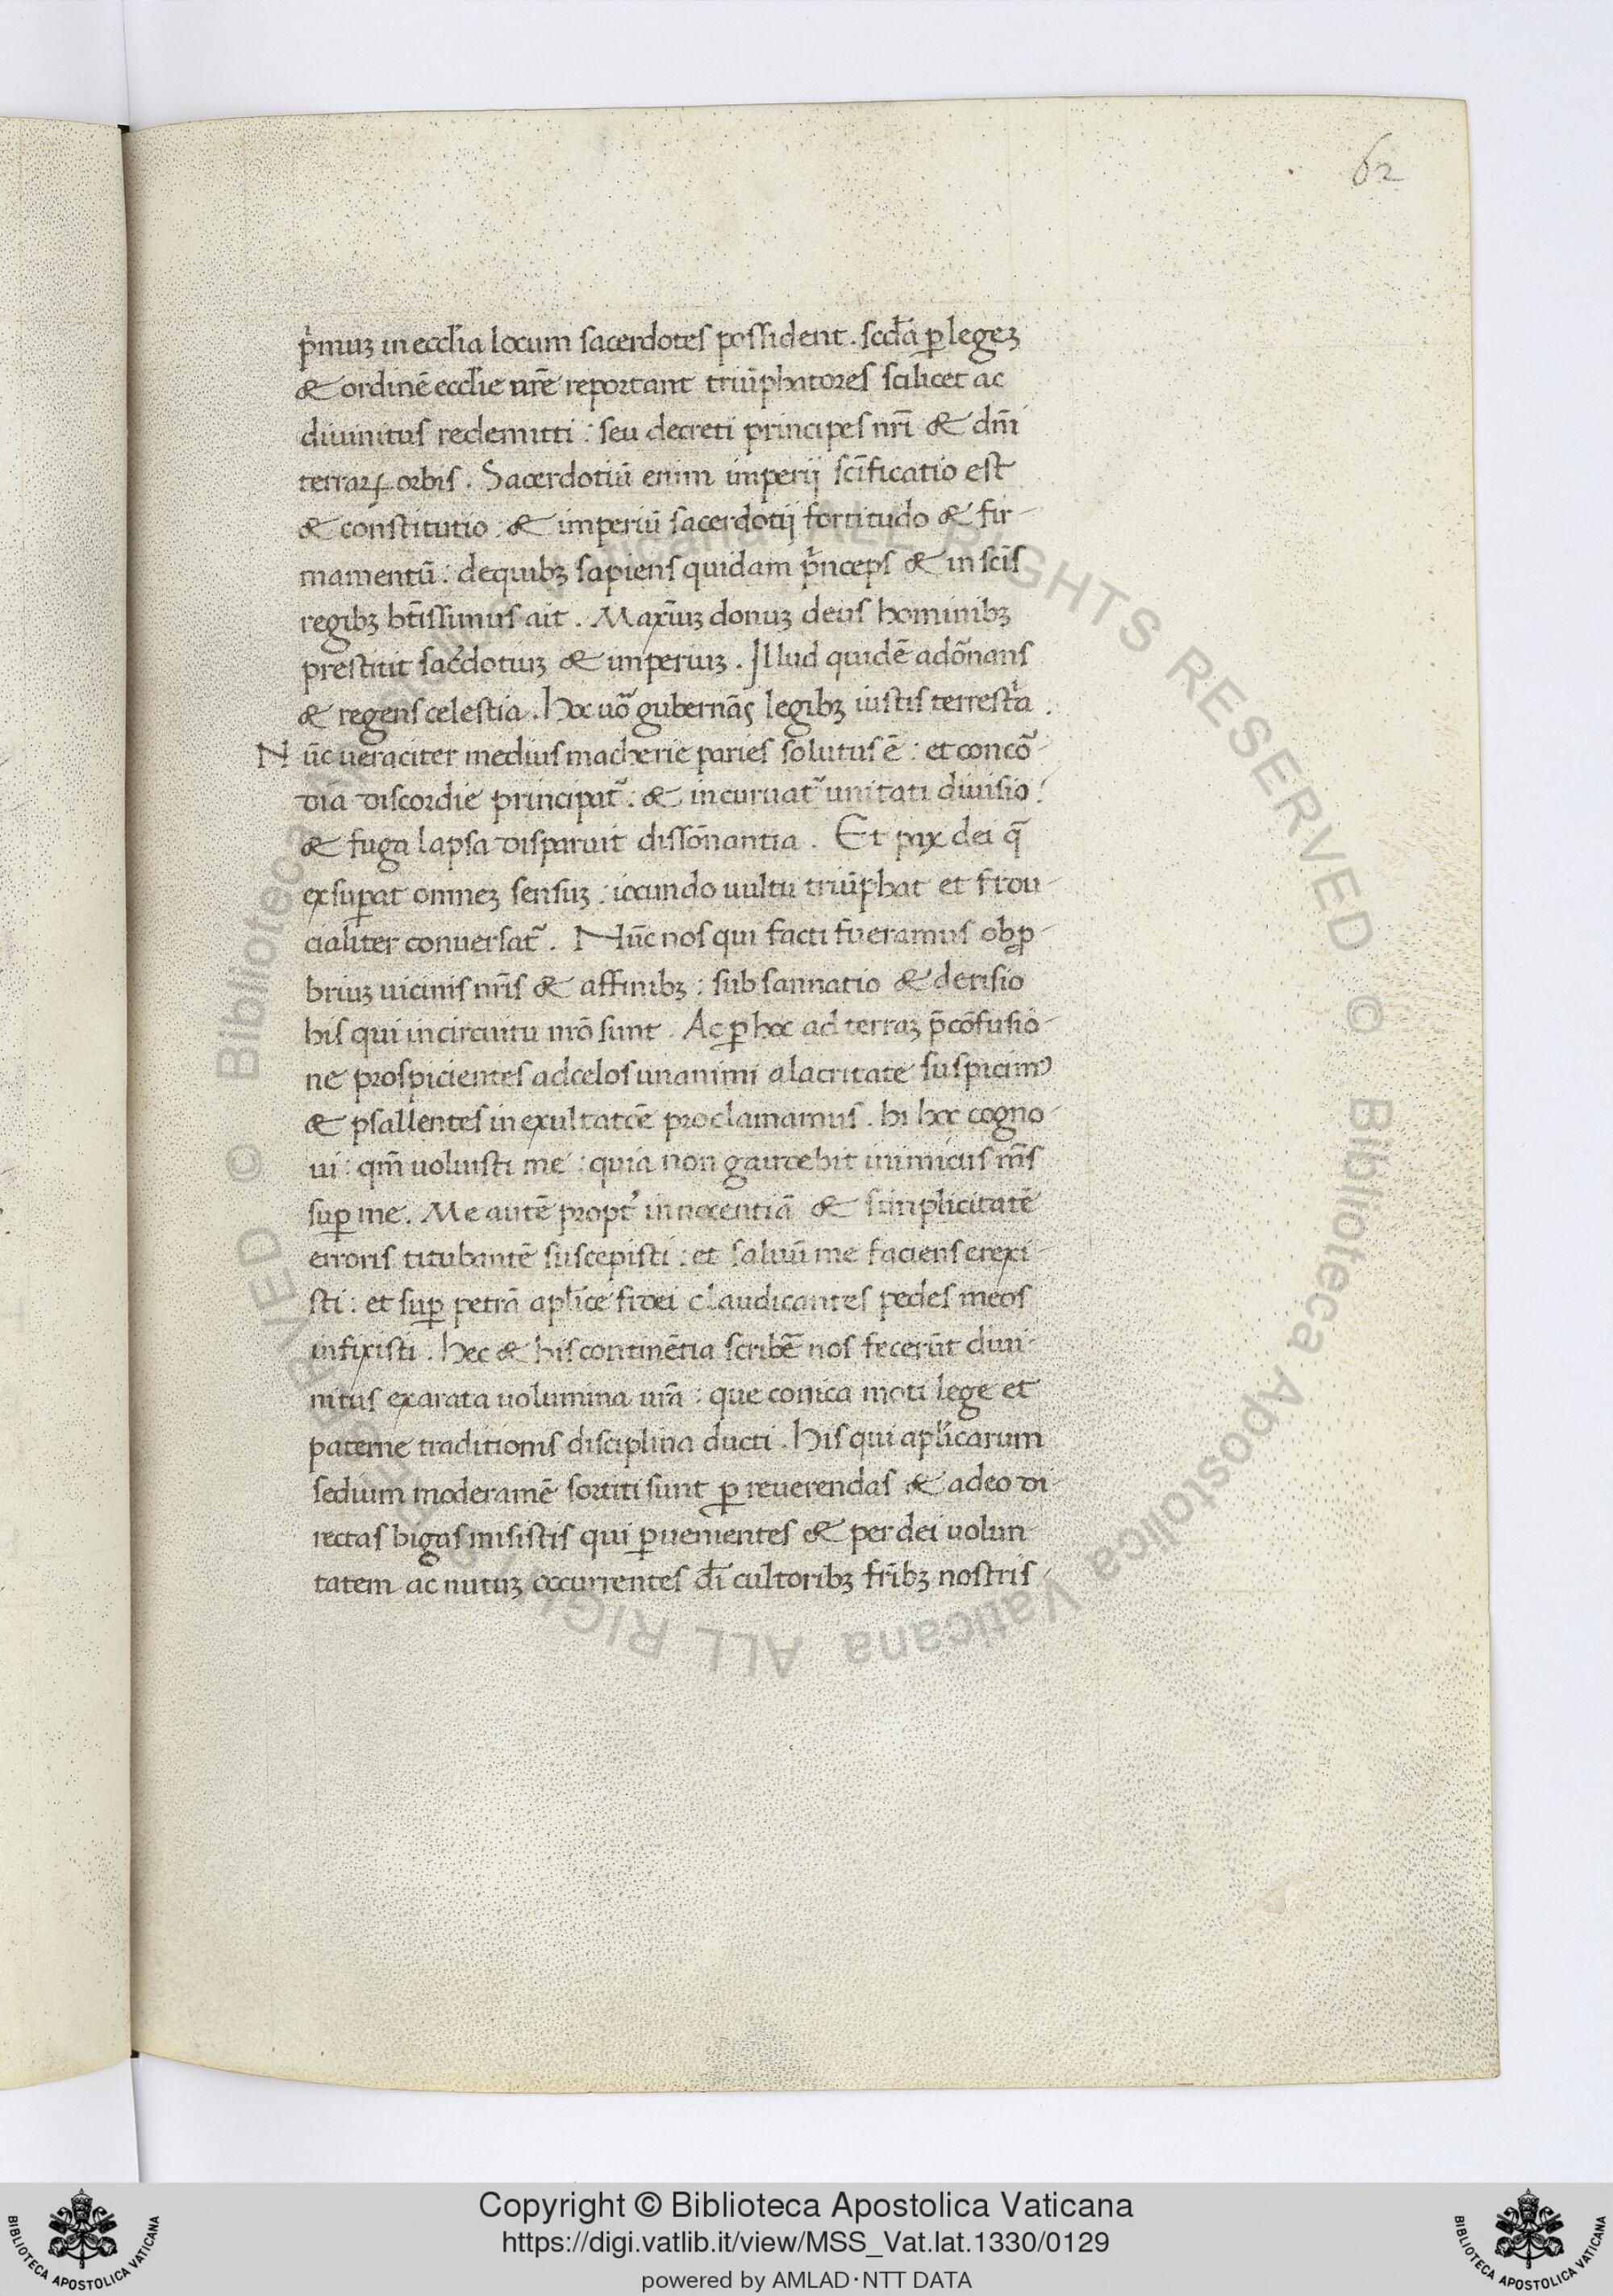 62
p̍muꝫ in eccl̄ia locum sacerdotes possident . scd̄a ꝑ legeꝫ
& ordinē eccl̄ie nr̄e reportant triūphatores scilicet ac
diuinitus redemiti : seu decreti principes nr̄i & dn̄i
terraꝝ orbis . Sacerdotiū enim imperij sc̄ificatio est
& constitutio : & imperiū sacerdotij fortitudo & fir-
mamentū : de quibꝫ sapiens quidam p̍nceps & in sc̄is
regibꝫ bt̄issimus ait . Maxīuꝫ donuꝫ deus hominibꝫ
prestitit sac̄dotiuꝫ & imperiuꝫ . Illud quidē adōnans
& regens celestia . Hoc uō gubernās legibꝫ iustis terrest̍a .
Nūc ueraciter medius macherie paries solutus ē : et concō-
dia discordie principat᷑ : & incuruat᷑ unitati diuisio :
& fuga lapsa disparuit dissōnantia . Et pax dei q̄
exsuꝑat omneꝫ sensuꝫ : iocundo uultu triūphat et fidu-
cialiter conuersat᷑ . Nūc nos qui facti fueramus obꝓ-
briuꝫ uicinis nr̄is & affinibꝫ : subsannatio & derisio
his qui in circuitu nr̄o sunt . Ac ꝑ hoc ad terraꝫ p̄ cōfusio-
ne prospicientes ad celos unanimi alacritate suspicimꝰ
& psallentes in exultatōe proclamamus . In hoc cogno-
ui : qm̄ uoluisti me : quia non gaudebit inimicus m̄s
suꝑ me . Me autē propt̍ innocentiā & simplicitatē
erroris titubantē suscepisti : et saluū me faciens erexi-
sti : et suꝑ petrā apl̄ice fidei claudicantes pedes meos
infixisti . Hec & his continētia scribē nos fecerūt diui-
nitus exarata uolumina ur̄a : que conica moti lege et
paterne traditionis disciplina ducti . His qui apl̄icarum
sedium moderamē sortiti sunt ꝑ reuerendas & a deo di-
rectas bigas misistis qui ꝑuenientes & per dei uolun-
tatem ac nutuꝫ occurrentes dī cultoribꝫ fr̄ibꝫ nostris
© Biblioteca Apostolica Vaticana ALL RIGHTS RESERVED
Copyright © Biblioteca Apostolica Vaticana
https://digi.vatlib.it/view/MSS_Vat.lat.1330/0129
powered by AMLAD·NTT DATA
BIBLIOTECA APOSTOLICA VATICANA
BIBLIOTECA APOSTOLICA VATICANA